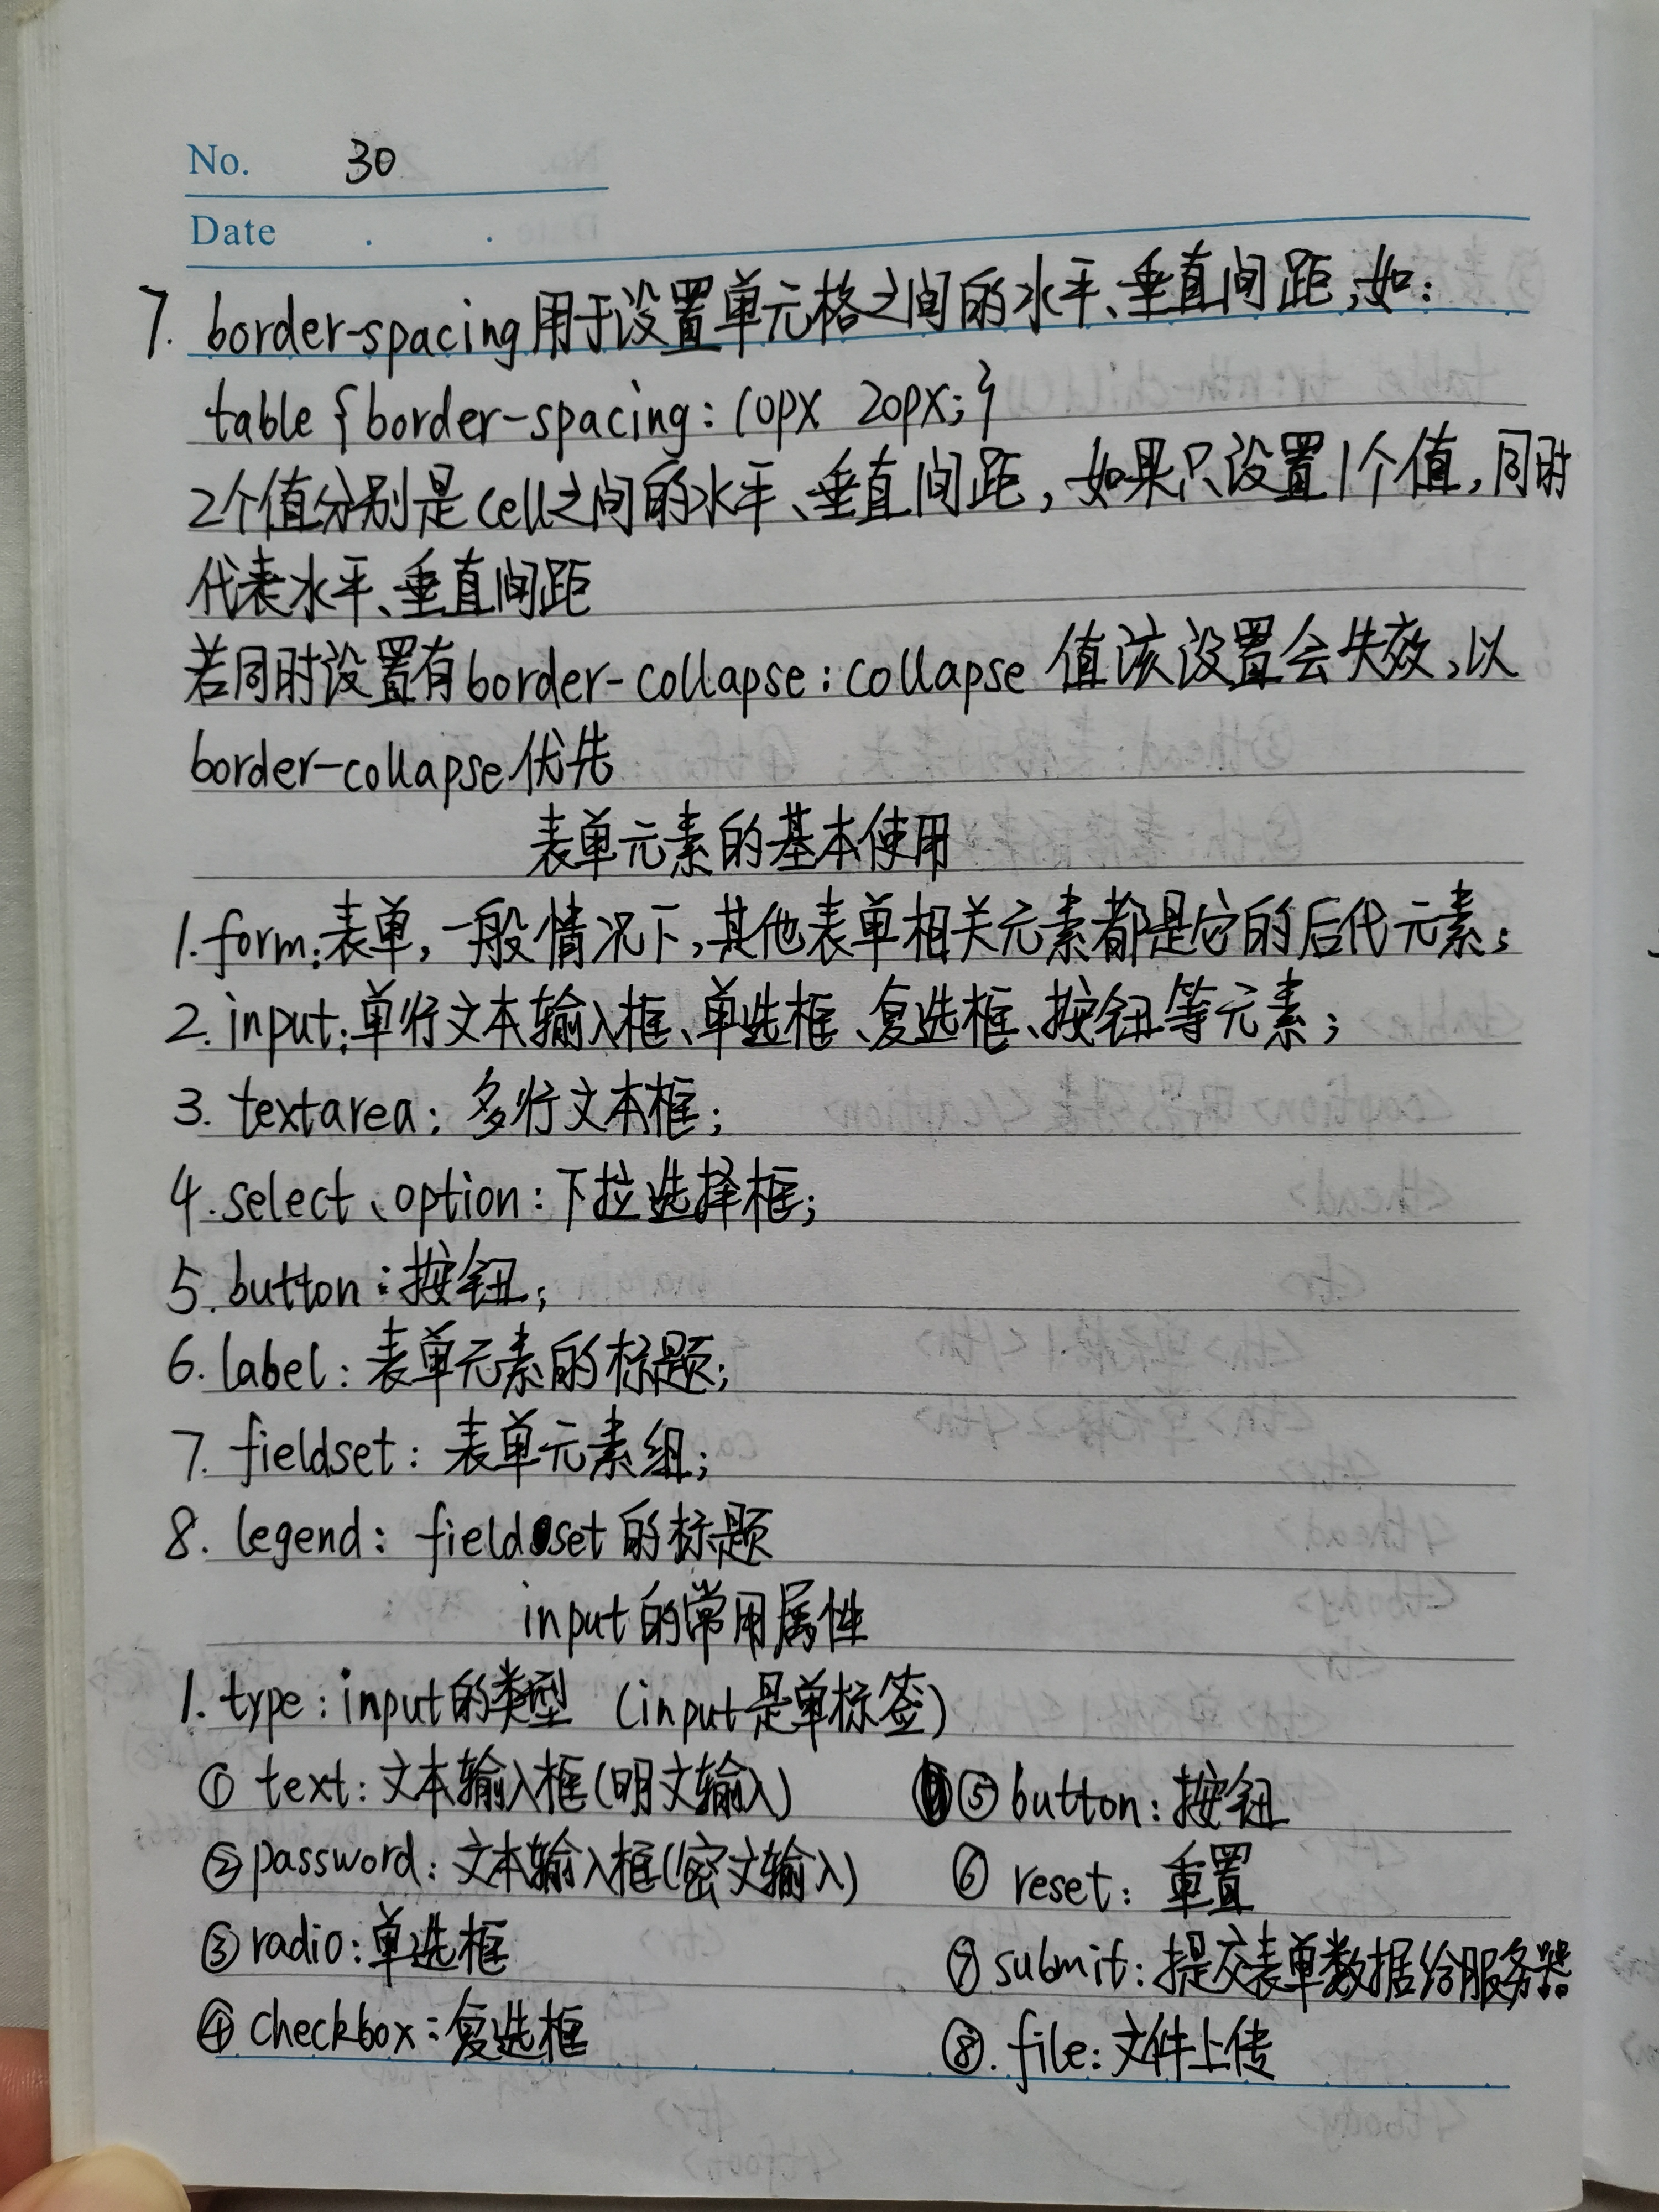 No. 30
Date . .
7. border-spacing用于设置单元格之间的水平、垂直间距,如:
table {border-spacing: 10px 20px;}
2个值分别是cell之间的水平、垂直间距,如果只设置1个值,同时
代表水平、垂直间距
若同时设置有border-collapse:collapse 值该设置会失效,以
border-collapse优先
表单元素的基本使用
1.form:表单,一般情况下,其他表单相关元素都是它的后代元素;
2.input:单行文本输入框、单选框、复选框、按钮等元素;
3. textarea: 多行文本框;
4.select、option:下拉选择框;
5.button:按钮;
6.label:表单元素的标题;
7. fieldset: 表单元素组;
8. legend: fieldset 的标题
input的常用属性
1.type:input的类型 (input是单标签)
① text:文本输入框(明文输入) ⑤button:按钮
②password:文本输入框(密文输入) ⑥ reset: 重置
③radio:单选框 ⑦submit:提交表单数据给服务器
④checkbox:复选框 ⑧.file:文件上传